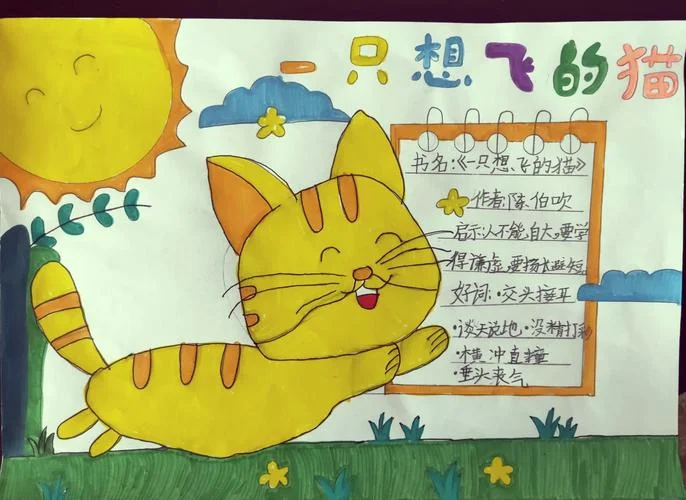 一只想飞的猫
书名:《一只想飞的猫》
作者:陈伯吹
启示:人不能自大,要学
得谦虚,要扬长避短。
好词:·交头接耳
·谈天说地·没精打彩
·横冲直撞
·垂头丧气